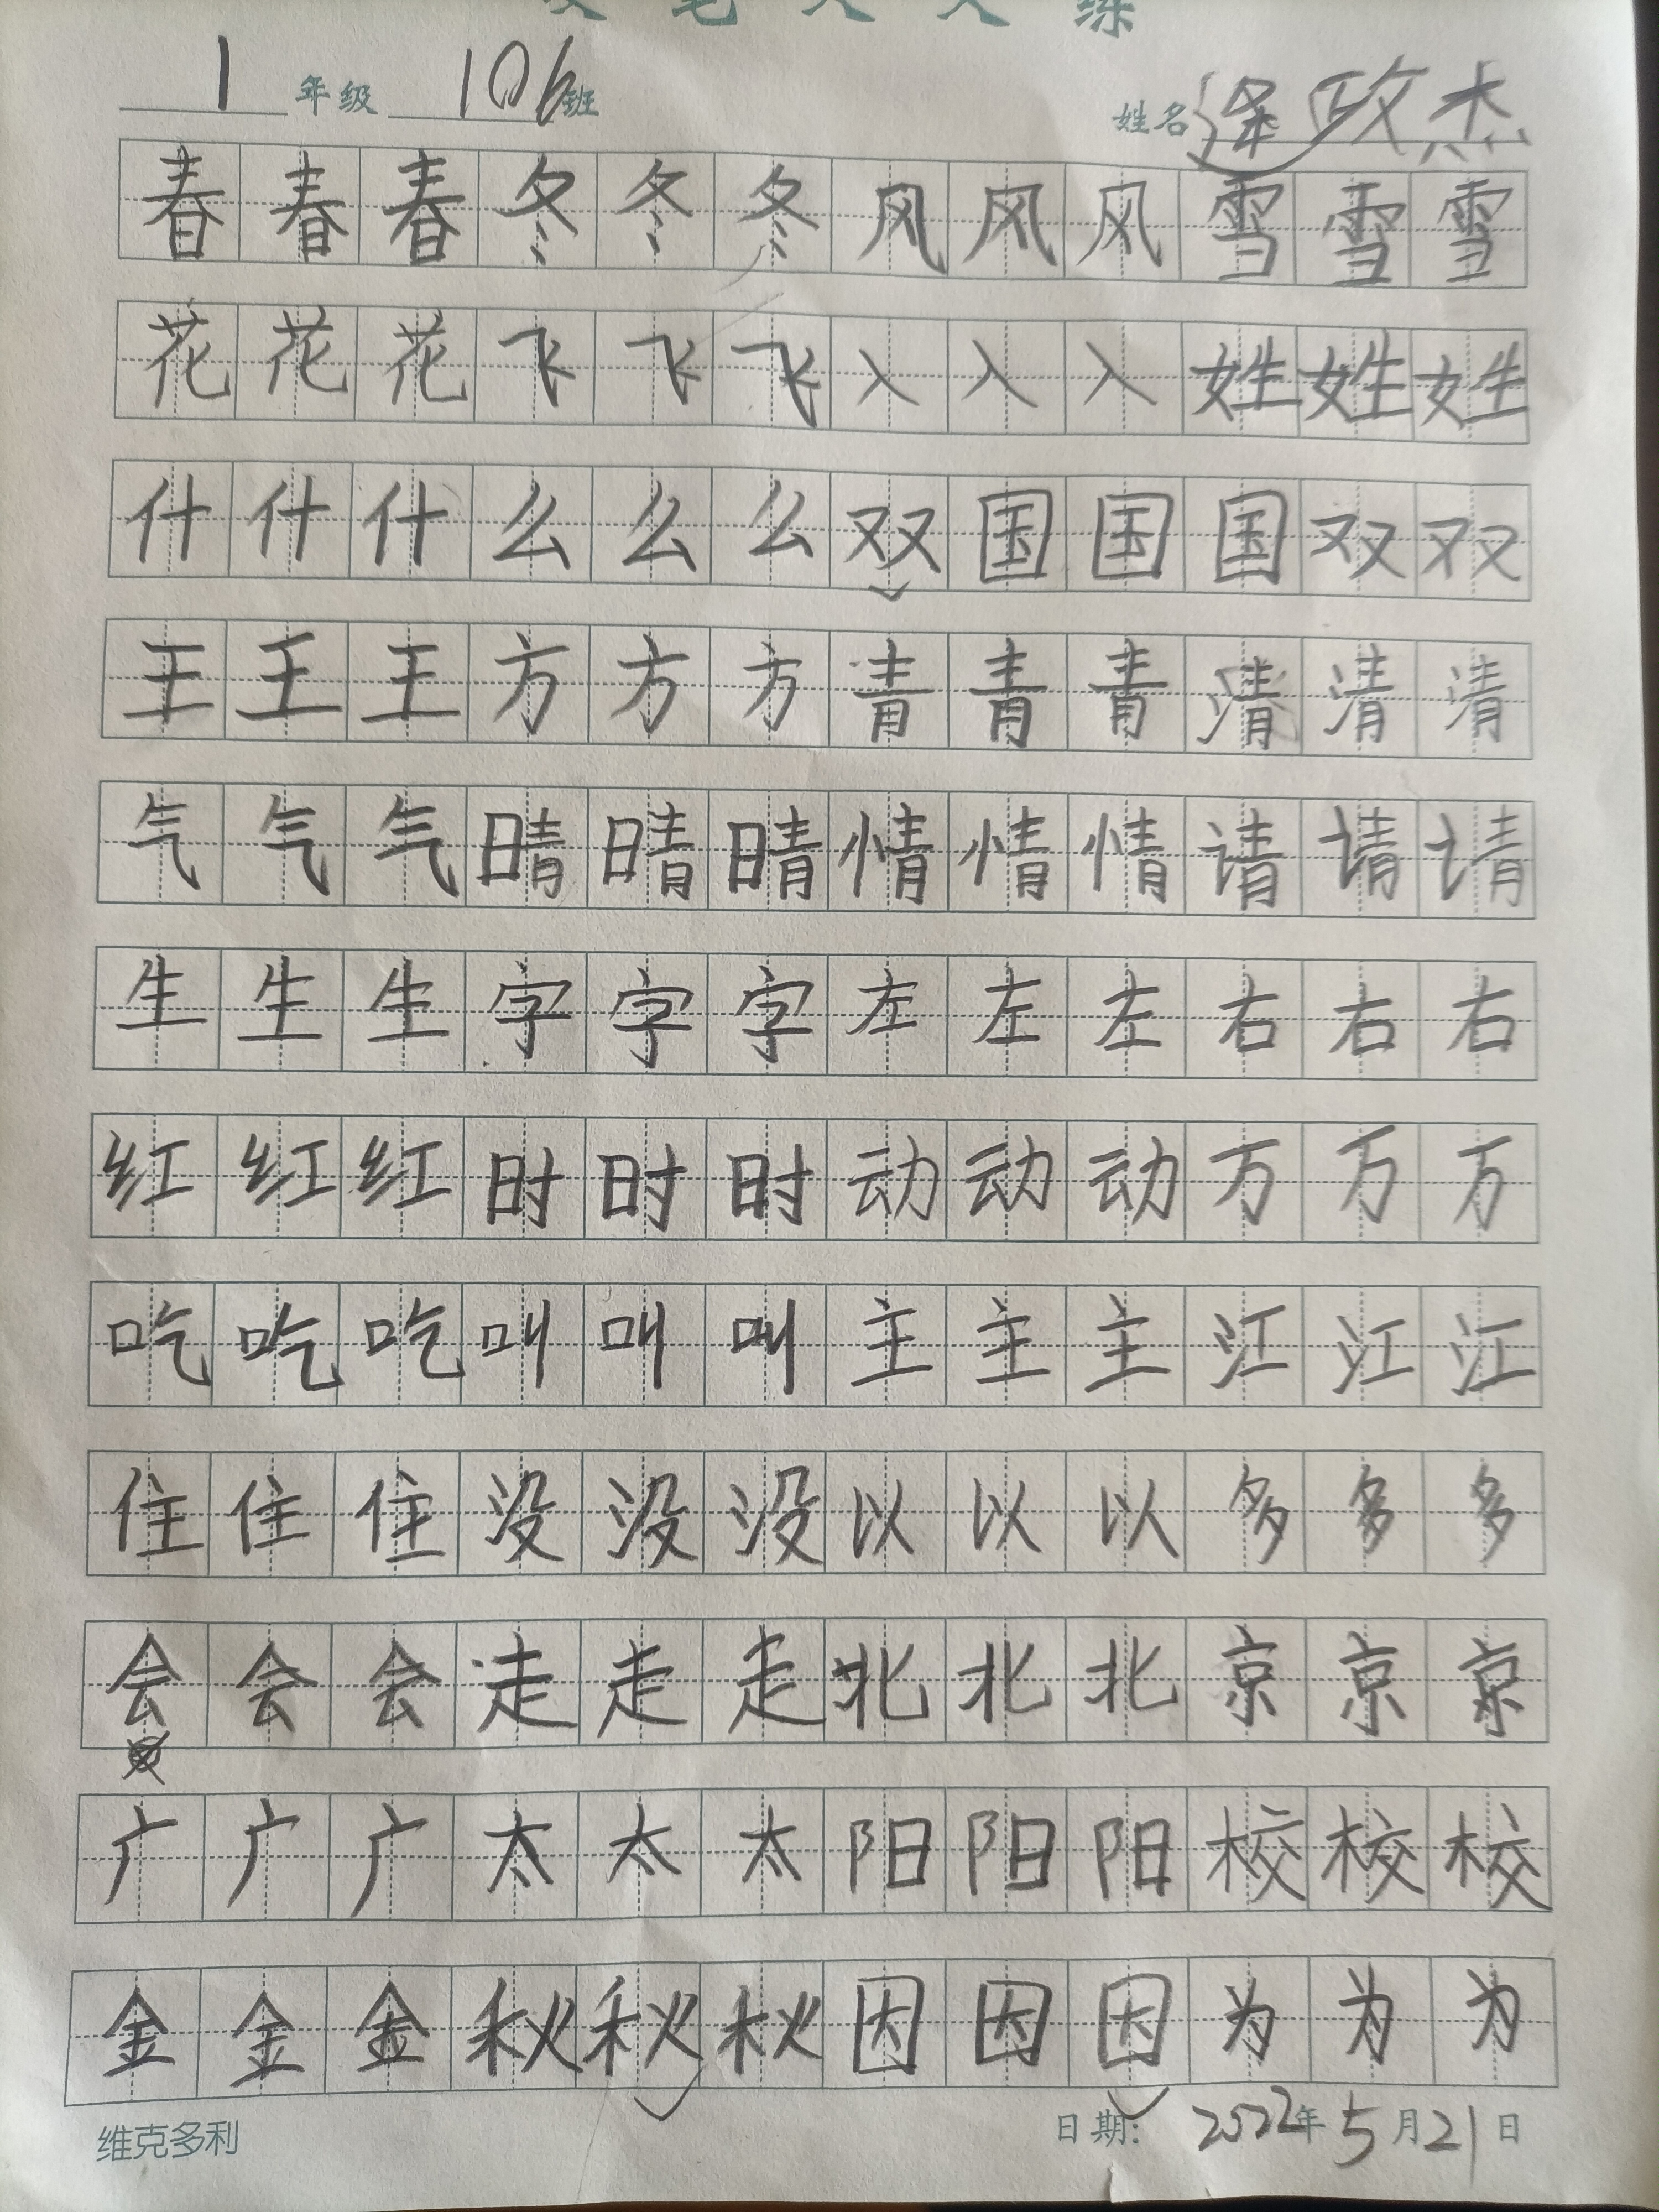 笔 人 人 练
1 年级 106 班 姓名 逄政杰
春春春冬冬冬风风风雪雪雪
花花花飞飞飞入入入姓姓姓
什什什么么么双国国国双双
王王王方方方青青青清清清
气气气晴晴晴情情情请请请
生生生字字字左左左右右右
红红红时时时动动动万万万
吃吃吃叫叫叫主主主江江江
住住住没没没以以以多多多
会会会走走走北北北京京京
广广广太太太阳阳阳校校校
金金金秋秋秋因因因为为为
维克多利 日期: 2022年5月21日